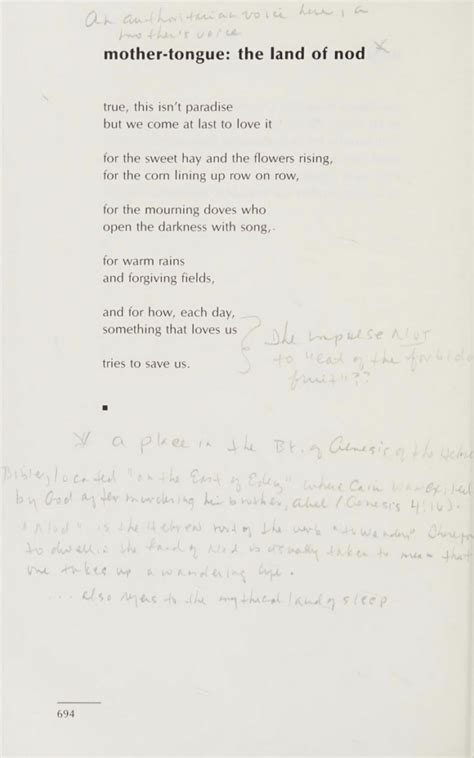 An authoritarian voice here, a
mother's voice
mother-tongue: the land of nod *
true, this isn't paradise
but we come at last to love it
for the sweet hay and the flowers rising,
for the corn lining up row on row,
for the mourning doves who
open the darkness with song,
for warm rains
and forgiving fields,
and for how, each day,
something that loves us
tries to save us.
The impulse NOT
to "eat of the forbidden
fruit"??
* a place in the Bk. of Genesis of the Hebrew
Bible, located "on the East of Eden" where Cain was exiled
by God after murdering his brother, Abel (Genesis 4:16).
"Nod" is the Hebrew root of the verb "to wander". Therefore
to dwell in the land of Nod is usually taken to mean that
one takes up a wandering life.
... also refers to the mythical land of sleep
694